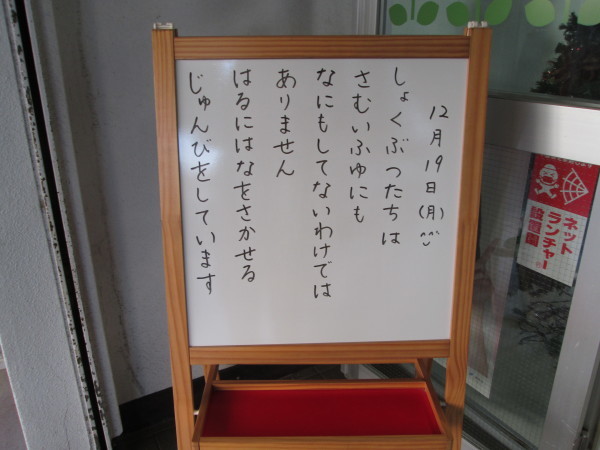 12月19日(月)^^
しょくぶつたちは
さむいふゆにも
なにもしてないわけでは
ありません
はるにはなをさかせる
じゅんびをしています
ネット
ランチャー
設置園